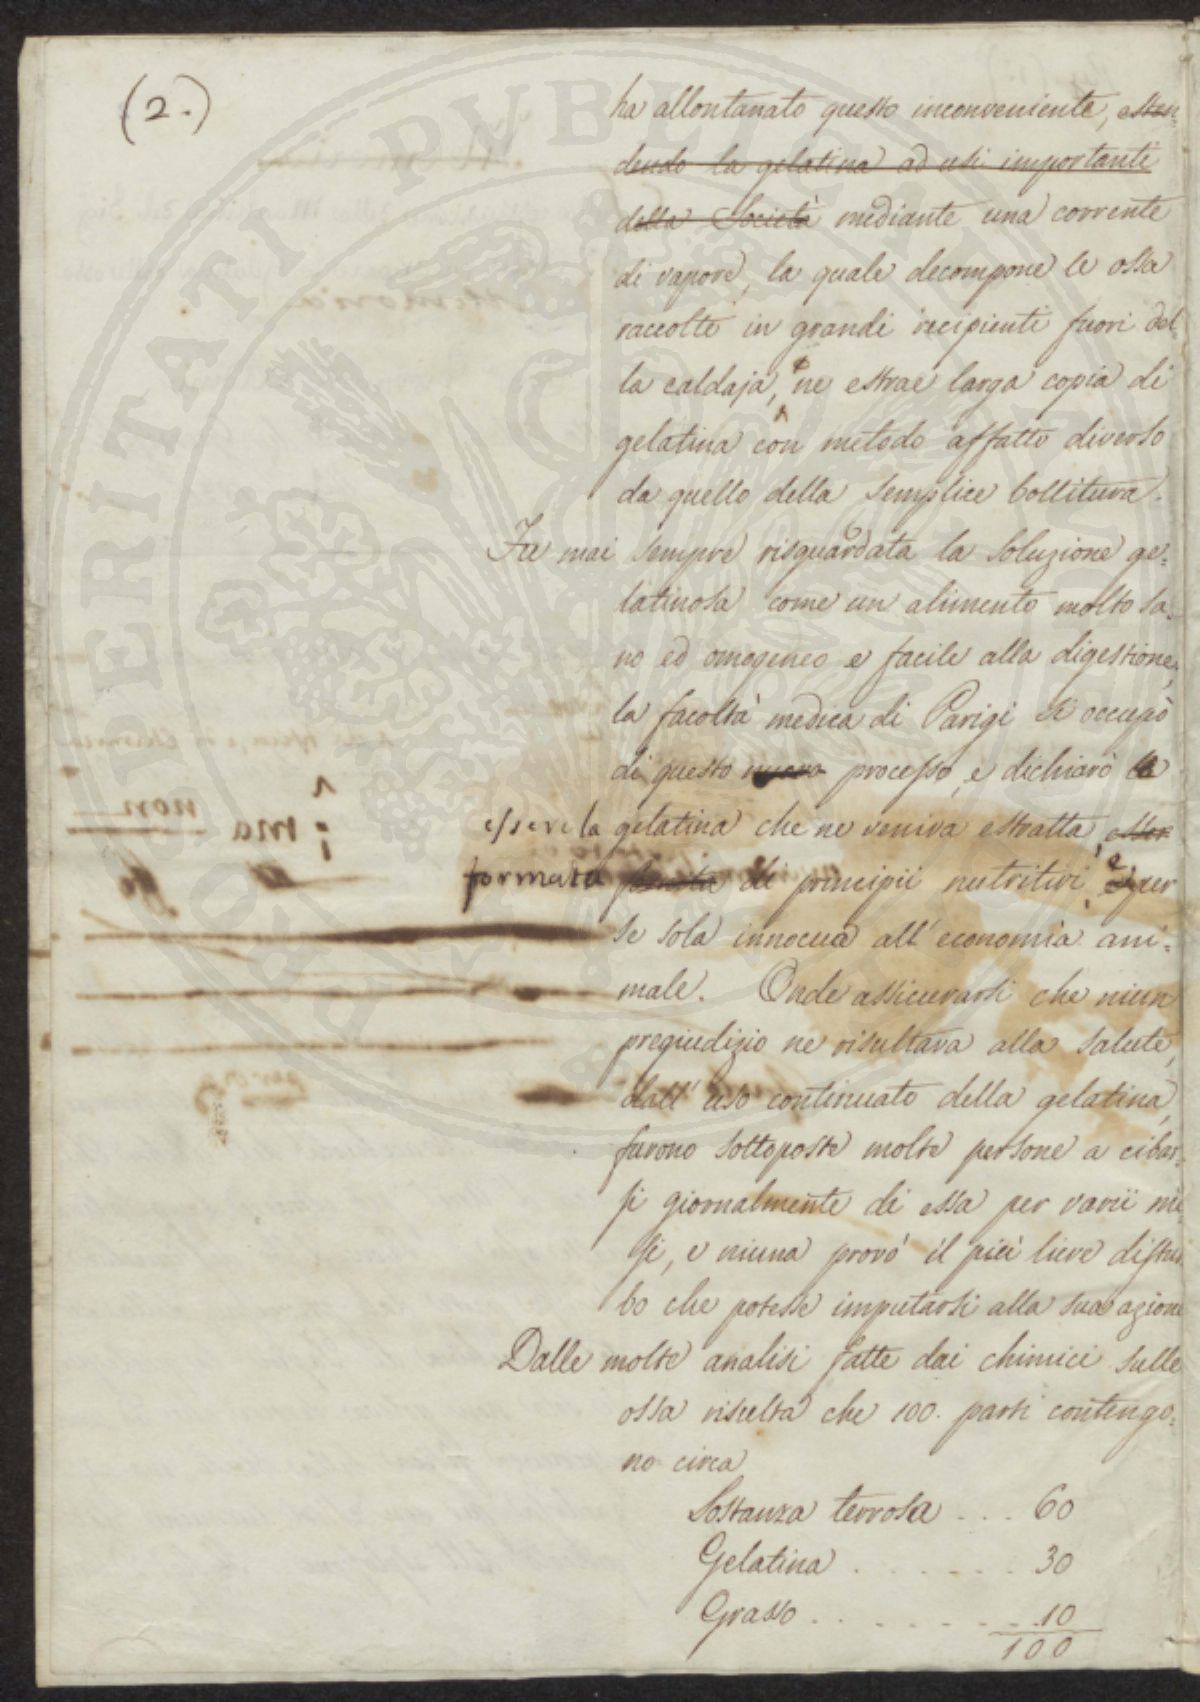 (2.)
ha allontanato questo inconveniente, esten
dendo la gelatina ad usi importanti
della Società mediante una corrente
di vapore, la quale decompone le ossa
raccolte in grandi recipienti fuori del
la caldaja, e ne estrae larga copia di
gelatina con metodo affatto diverso
da quello della semplice bollitura.
Fu mai sempre risguardata la soluzione ge=
latinosa come un alimento molto sa=
no ed omogeneo e facile alla digestione,
la facoltà medica di Parigi si occupò
di questo nuovo processo, e dichiarò la
essere la gelatina che ne veniva estratta, esser
formata di principii nutritivi, e per
se sola innocua all'economia ani=
male. Onde assicurarsi che niun
pregiudizio ne risultava alla salute,
dall'uso continuato della gelatina,
furono sottoposte molte persone a cibar=
si giornalmente di essa per varii me
si, e niuna provò il più lieve distur
bo che potesse imputarsi alla sua azione
Dalle molte analisi fatte dai chimici sulle
ossa risulta che 100. parti contengo=
no circa
Sostanza terrosa . . . 60
Gelatina . . . . . . . 30
Grasso . . . . . . . . 10
100
non
; ma